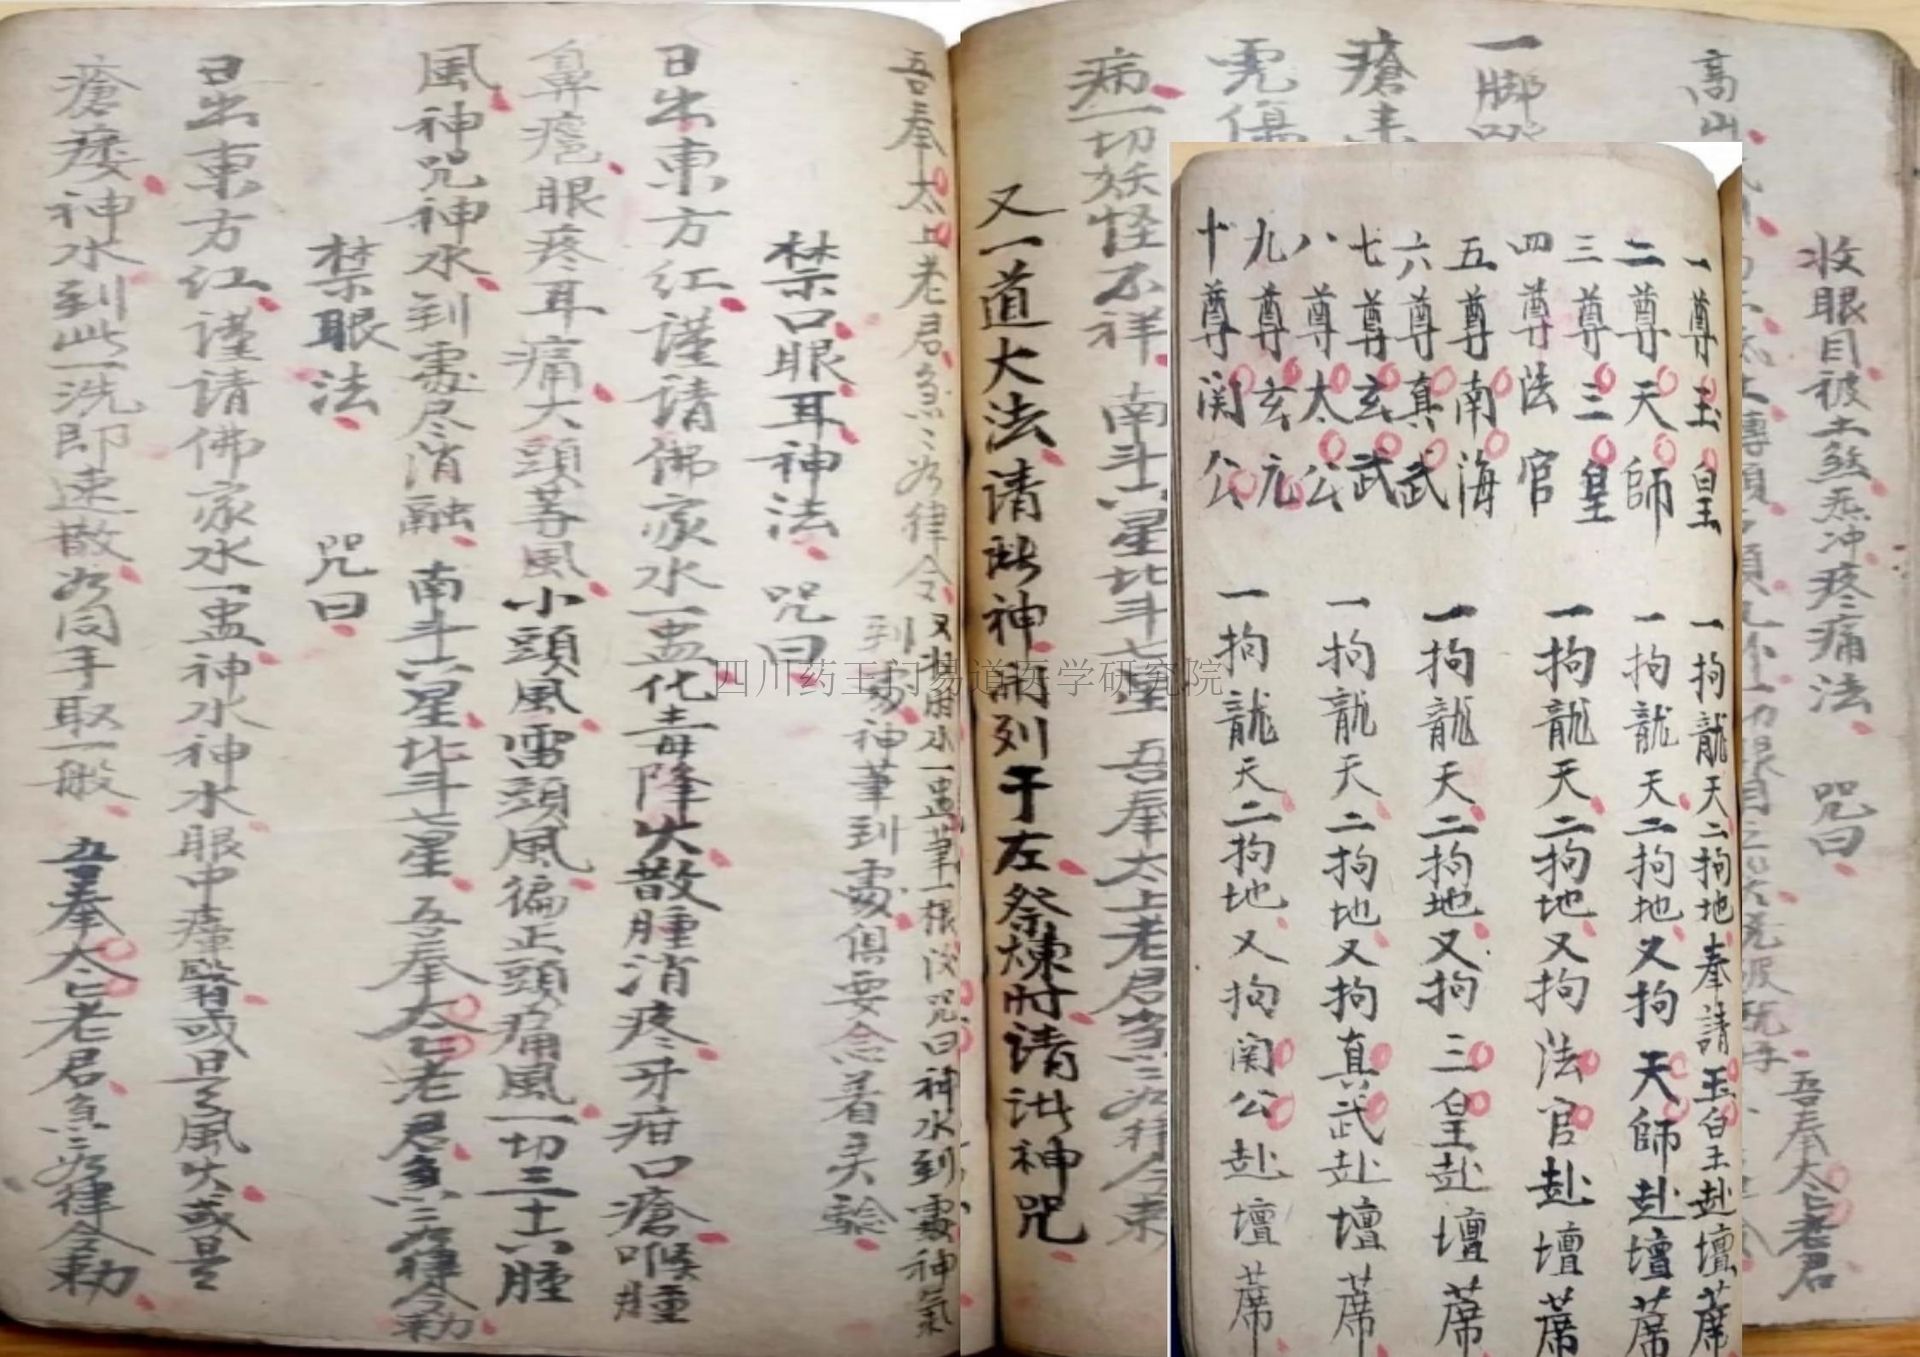 收眼目被土煞炁冲疼痛法 咒曰
吾奉太上老君
高山
一脚
瘡
病一切妖怪不祥 南斗六星北斗七星 吾奉太上老君急急如律令
又一道大法请此神開列于左祭煉时请此神咒
一尊玉皇
二尊天師
三尊三皇
四尊法官
五尊南海
六尊真武
七尊玄武
八尊太公
九尊玄元
十尊関公
一拘龍天二拘地奉請玉皇赴壇蓆
一拘龍天二拘地又拘天師赴壇蓆
一拘龍天二拘地又拘法官赴壇蓆
一拘龍天二拘地又拘三皇赴壇蓆
一拘龍天二拘地又拘真武赴壇蓆
一拘龍天二拘地又拘関公赴壇蓆
吾奉太上老君急急如律令 又 水一盅筆一根 咒曰神水到處神氣
到處神筆到處俱要念着灵驗
禁口眼耳神法 咒曰
日出東方红谨请佛家水一盅化毒降火散腫消疼牙疳口瘡喉腫
鼻瘡眼疼耳痛大頭等風小頭風雷頭風偏正頭痛風一切三十六腫
風神咒神水到處尽消融南斗六星北斗七星 吾奉太上老君急急如律令勅
禁眼法 咒曰
日出東方红谨请佛家水一盅神水神水眼中 或是風火或是
瘡痿神水到此一洗即速散如同手取一般 吾奉太上老君急急如律令勅
四川药王门易道医学研究院